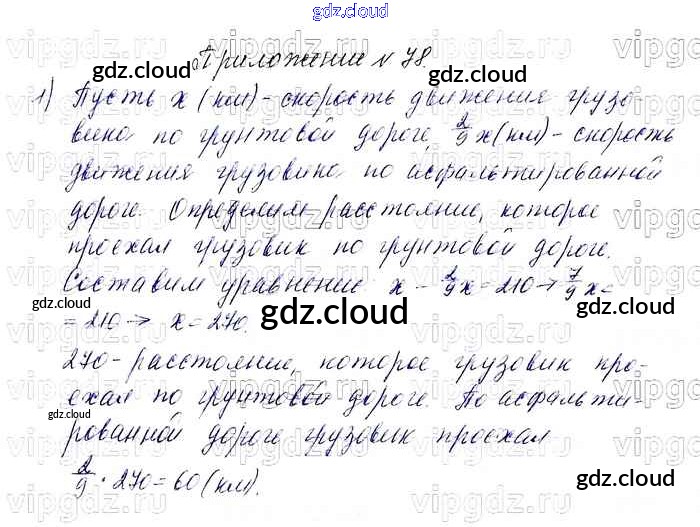 gdz.cloud
Приложение № 78.
1) Пусть x (км) - скорость движения грузо-
вика по грунтовой дороге, 2/9 x (км) - скорость
движения грузовика по асфальтированной
дороге. Определим расстояние, которое
проехал грузовик по грунтовой дороге.
Составим уравнение x - 2/9 x = 210 → 7/9 x =
= 210 → x = 270.
270 - расстояние, которое грузовик про-
ехал по грунтовой дороге. По асфальти-
рованной дороге грузовик проехал
2/9 · 270 = 60 (км).